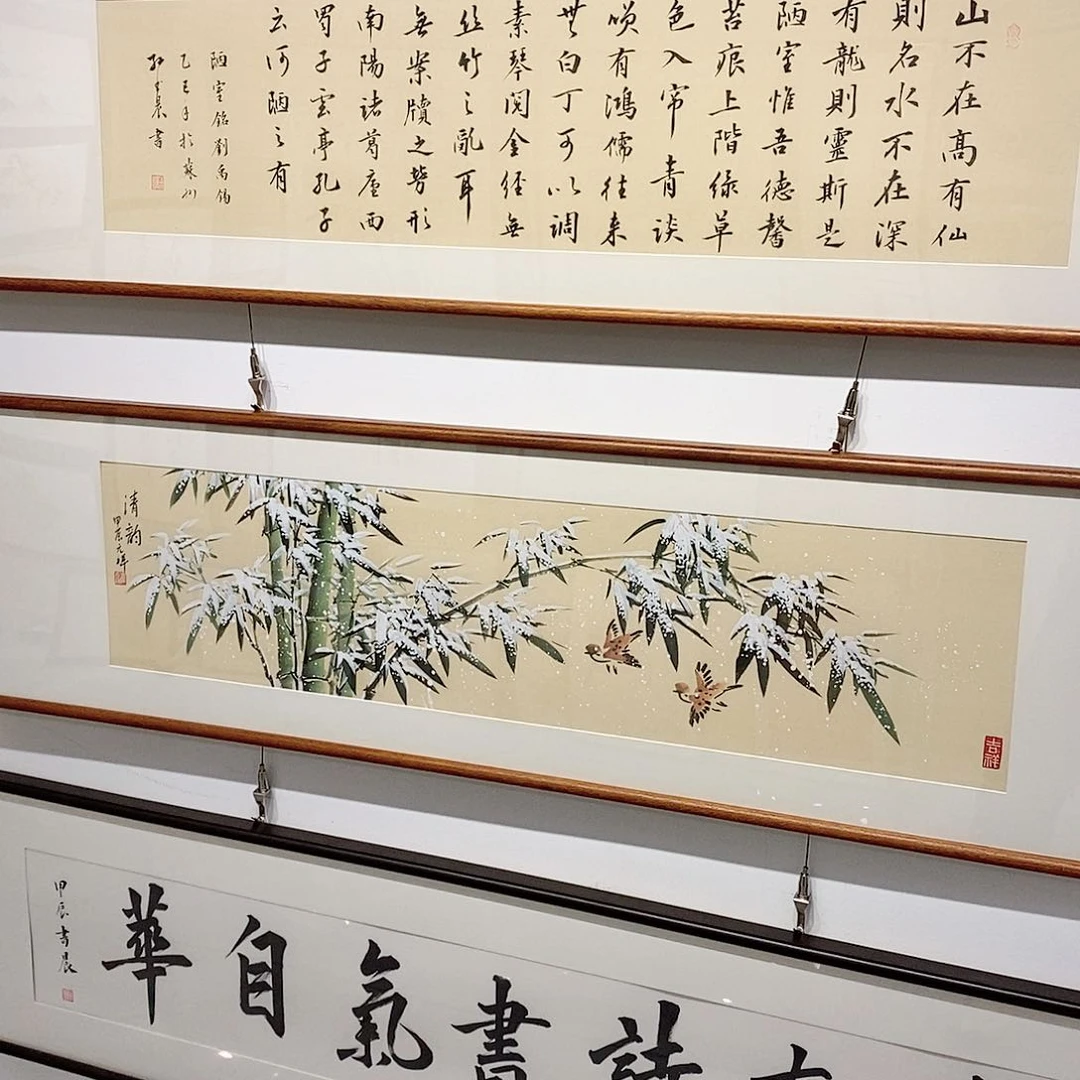 山不在高有仙
則名水不在深
有龍則靈斯是
陋室惟吾德馨
苔痕上階綠草
色入帘青談
咲有鴻儒往來
無白丁可以調
素琴閱金經無
丝竹之亂耳
無案牘之勞形
南陽諸葛廬西
蜀子雲亭孔子
云何陋之有
陋室銘劉禹錫
乙巳年於蘇州
書
清韵
甲辰元祥
吉祥
有詩書氣自華
甲辰书晨